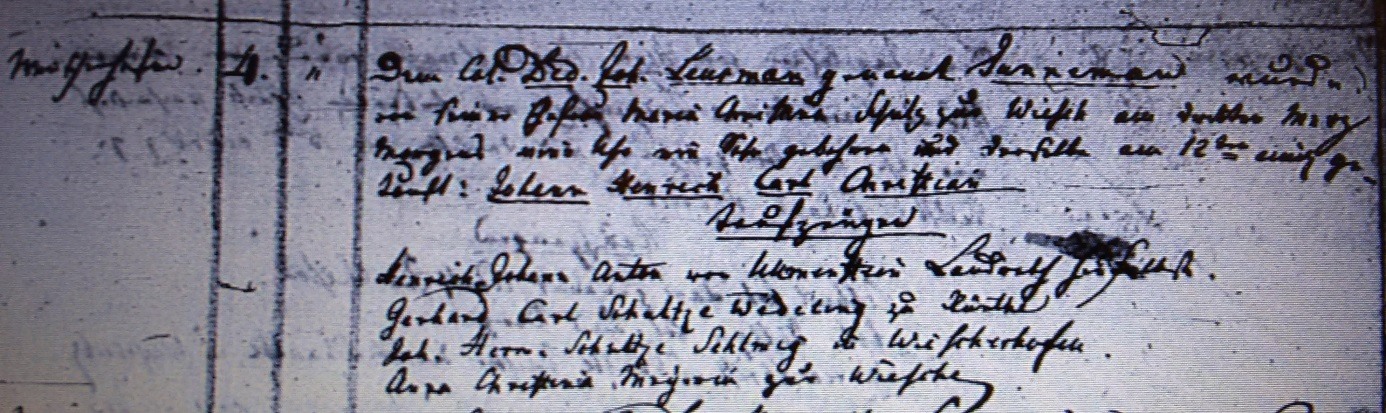 4. "
Dem Col. Died. Joh. Leusman genannt Sunneman wurde
von seiner Ehefrau Maria Christina Schulz zur Wiesch am dritten Merz
Morgens ein Uhr ein Sohn gebohren und derselbe am 12ten ge-
tauft: Johann Henrich Carl Christian
Taufzeugen
Henrich Johann Anton von Landrath
Gerhard Carl Schultze Wedeling zu
Joh. Herm. Schultze zu Wischerhofen.
Anna Christina Meyerin zur Wiesche